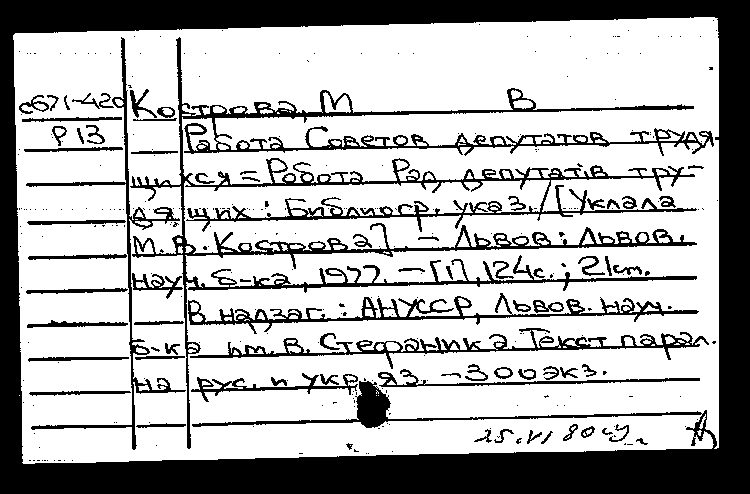 с671-420 Кострова, М В
Р13 Работа Советов депутатов трудя-
щихся = Робота Рад депутатів тру-
дящих : Библиогр. указ. / [Уклала
М. В. Кострова] – Львов : Львов.
науч. б-ка, 1977. – [1], 124с. ; 21 см.
В надзаг. : АНУССР, Львов. науч.
б-ка им. В. Стефаника. Текст парал.
на рус. и укр. яз. – 300 экз.
25.VI 80